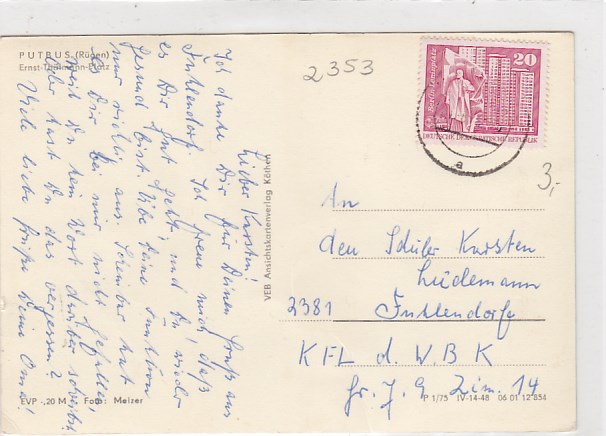 PUTBUS (Rügen)
Ernst-Thälmann-Platz
Lieber Karsten!
Ich danke Dir für Deinen Gruß aus
Fuhlendorf. Ich freue mich, daß
es Dir gut geht, und Du wieder
gesund bist.
nur richtig aus. Scheinbar hat
es Dir bei mir nicht gefallen,
weil Du kein Wort darüber schreibst
Oder hast Du das vergessen?
Viele liebe Grüße Deine Oma!
EVP -,20 M Foto: Melzer
VEB Ansichtskartenverlag Köthen
2353
20
Berlin, Leninplatz
DEUTSCHE DEMOKRATISCHE REPUBLIK
a
3,-
An
den Schüler Karsten
Lüdemann
2381 Fuhlendorf
KFL d. W B K
Gr. 7.9 Zim. 14
P 1/75 IV-14-48 06 01 12 854